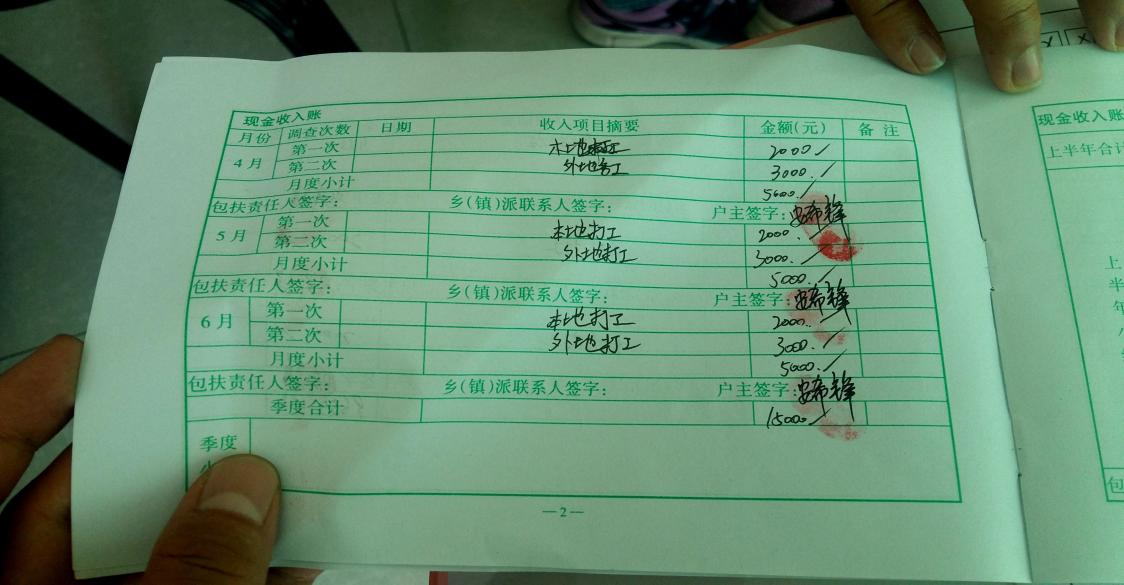 现金收入账
月份 调查次数 日期 收入项目摘要 金额(元) 备注
4月 第一次 本地打工 2000.
第二次 外地务工 3000.
月度小计 5000.
包扶责任人签字: 乡(镇)派联系人签字: 户主签字:
5月 第一次 本地打工 2000.
第二次 外地打工 3000.
月度小计 5000.
包扶责任人签字: 乡(镇)派联系人签字: 户主签字:
6月 第一次 本地打工 2000.
第二次 外地打工 3000.
月度小计 5000.
包扶责任人签字: 乡(镇)派联系人签字: 户主签字:
季度合计 15000.
季度
—2—
现金收入账
上半年合计
上
半
年
包